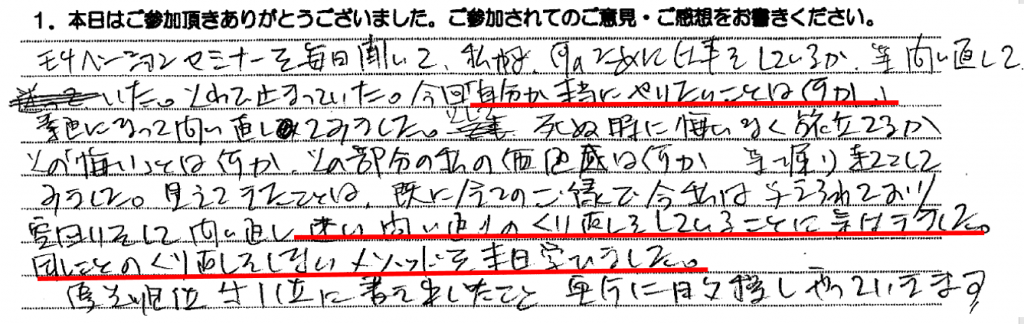 1. 本日はご参加頂きありがとうございました。ご参加されてのご意見・ご感想をお書きください。
モチベーションセミナーを毎日聞いて、私が、何のために仕事をしているか、等 問い直して
いた。それで止まっていた。今回「自分が本当にやりたいことは何か、」
素直になって問い直してみました。死ぬ時に悔いなく旅立てるか
その「悔い」とは何か、その部分の私の価値感は何か 等 掘り起こして
みました。見えてきたことは、既に今てのご縁で今私は与えられており
空回りをして 問い直し 迷い 問い直しのくり返しをしていることに気付きました。
同じことのくり返しをしないメソッドを本日学びました。
優先順位 1位に書き出したこと 実行に日々移し やっていきます